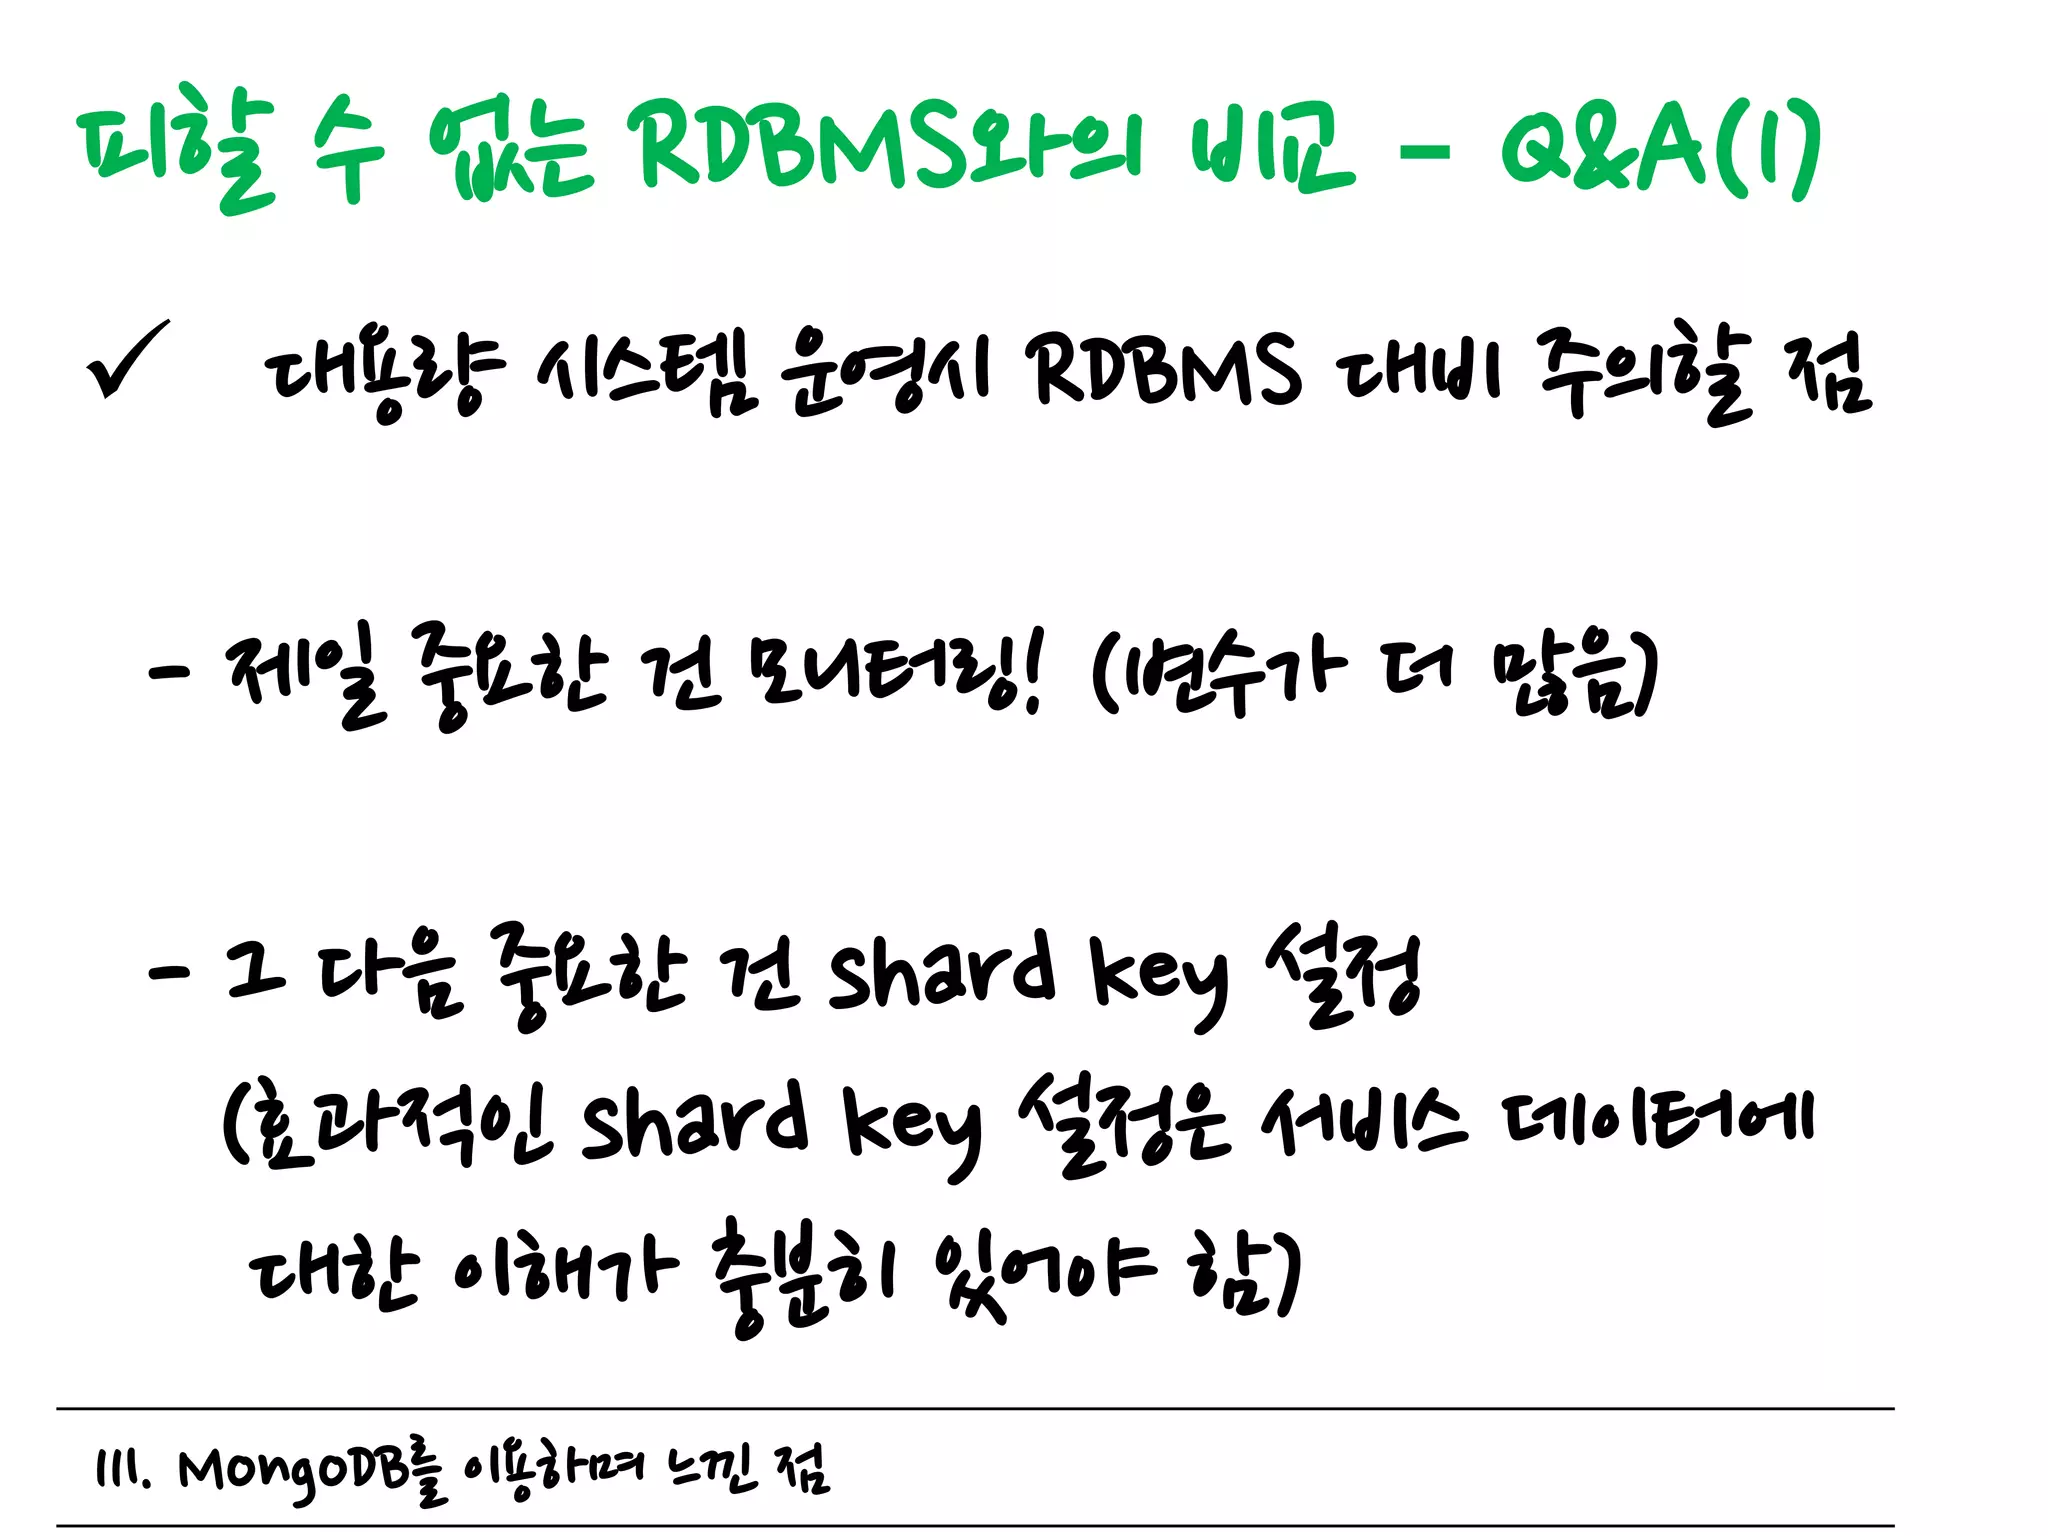 피할 수 없는 RDBMS와의 비교 - Q&A(1)
✓ 대용량 시스템 운영시 RDBMS 대비 주의할 점
- 제일 중요한 건 모니터링! (변수가 더 많음)
- 그 다음 중요한 건 shard key 설정
(효과적인 shard key 설정은 서비스 데이터에
대한 이해가 충분히 있어야 함)
III. MongoDB를 이용하며 느낀 점